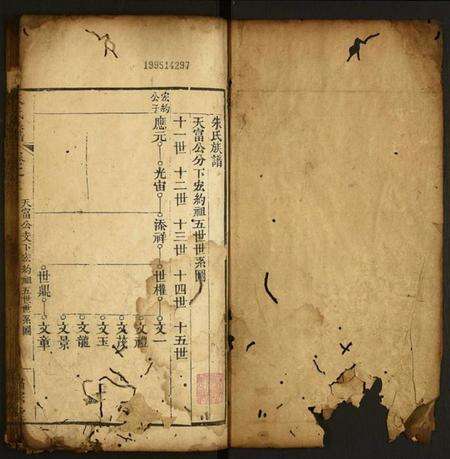 199514297
朱氏族譜
天富公分下宏約祖五世世系圖
十一世 十二世 十三世 十四世 十五世
宏約公子 應元 光宙 添祥 世權 文一
文禮
文茂
文玉
文龍
文景
世鵾 文章
天富公支下宏約祖五世世系圖